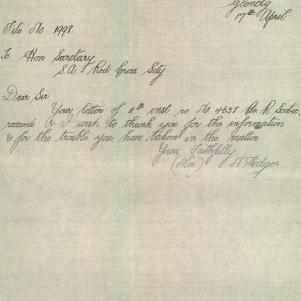 Glenelg
17th April
File No 1998
To Hon Secretary
S.A. Red Cross Scty
Dear Sir
Your letter of 11th inst, re No 4638 Pte R.
received & I wish to thank you for the information
& for the trouble you have taken in the matter
Yours Faithfully
(Mrs) Hedger